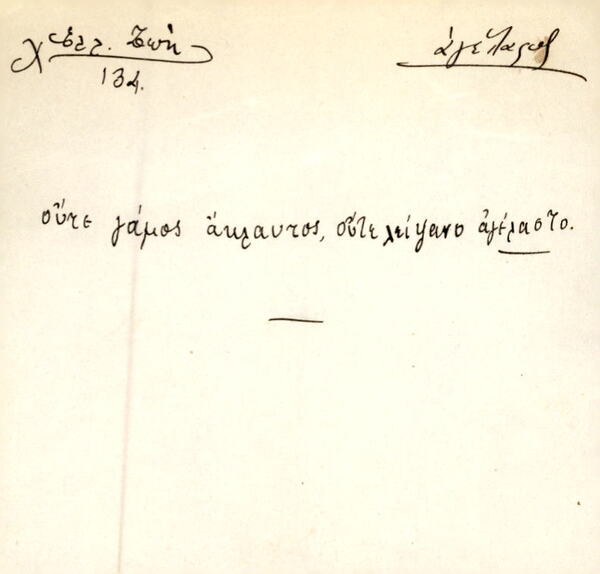 Ἑλλ. Ζωή
134.
ἀγέλαστος
οὔτε γάμος ἄκλαυτος, οὔτε λείψανο ἀγέλαστο.